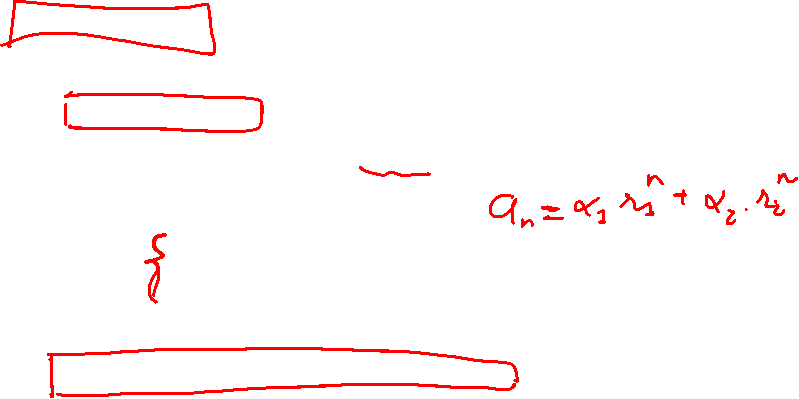 aₙ = α₁ r₁ⁿ + α₂ . r₂ⁿ